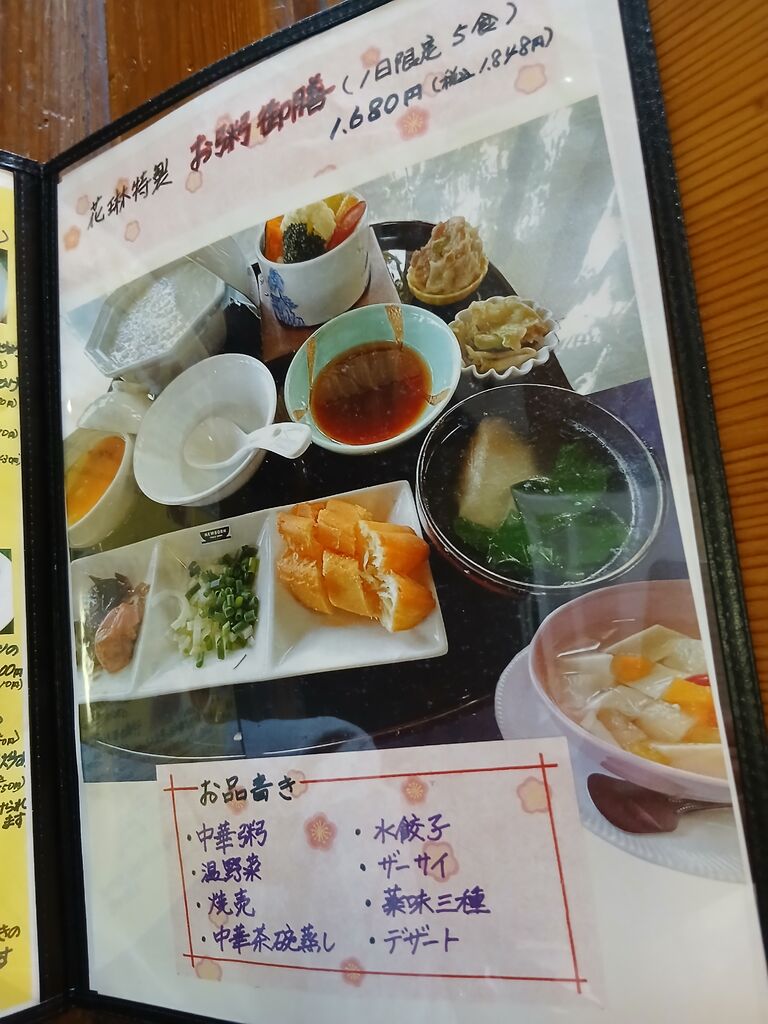 花琳特製 お粥御膳 (1日限定 5食)
1.680円 (税込 1.848円)
NEWBORN
お品書き
・中華粥
・温野菜
・焼売
・中華茶碗蒸し
・水餃子
・ザーサイ
・薬味三種
・デザート
ます